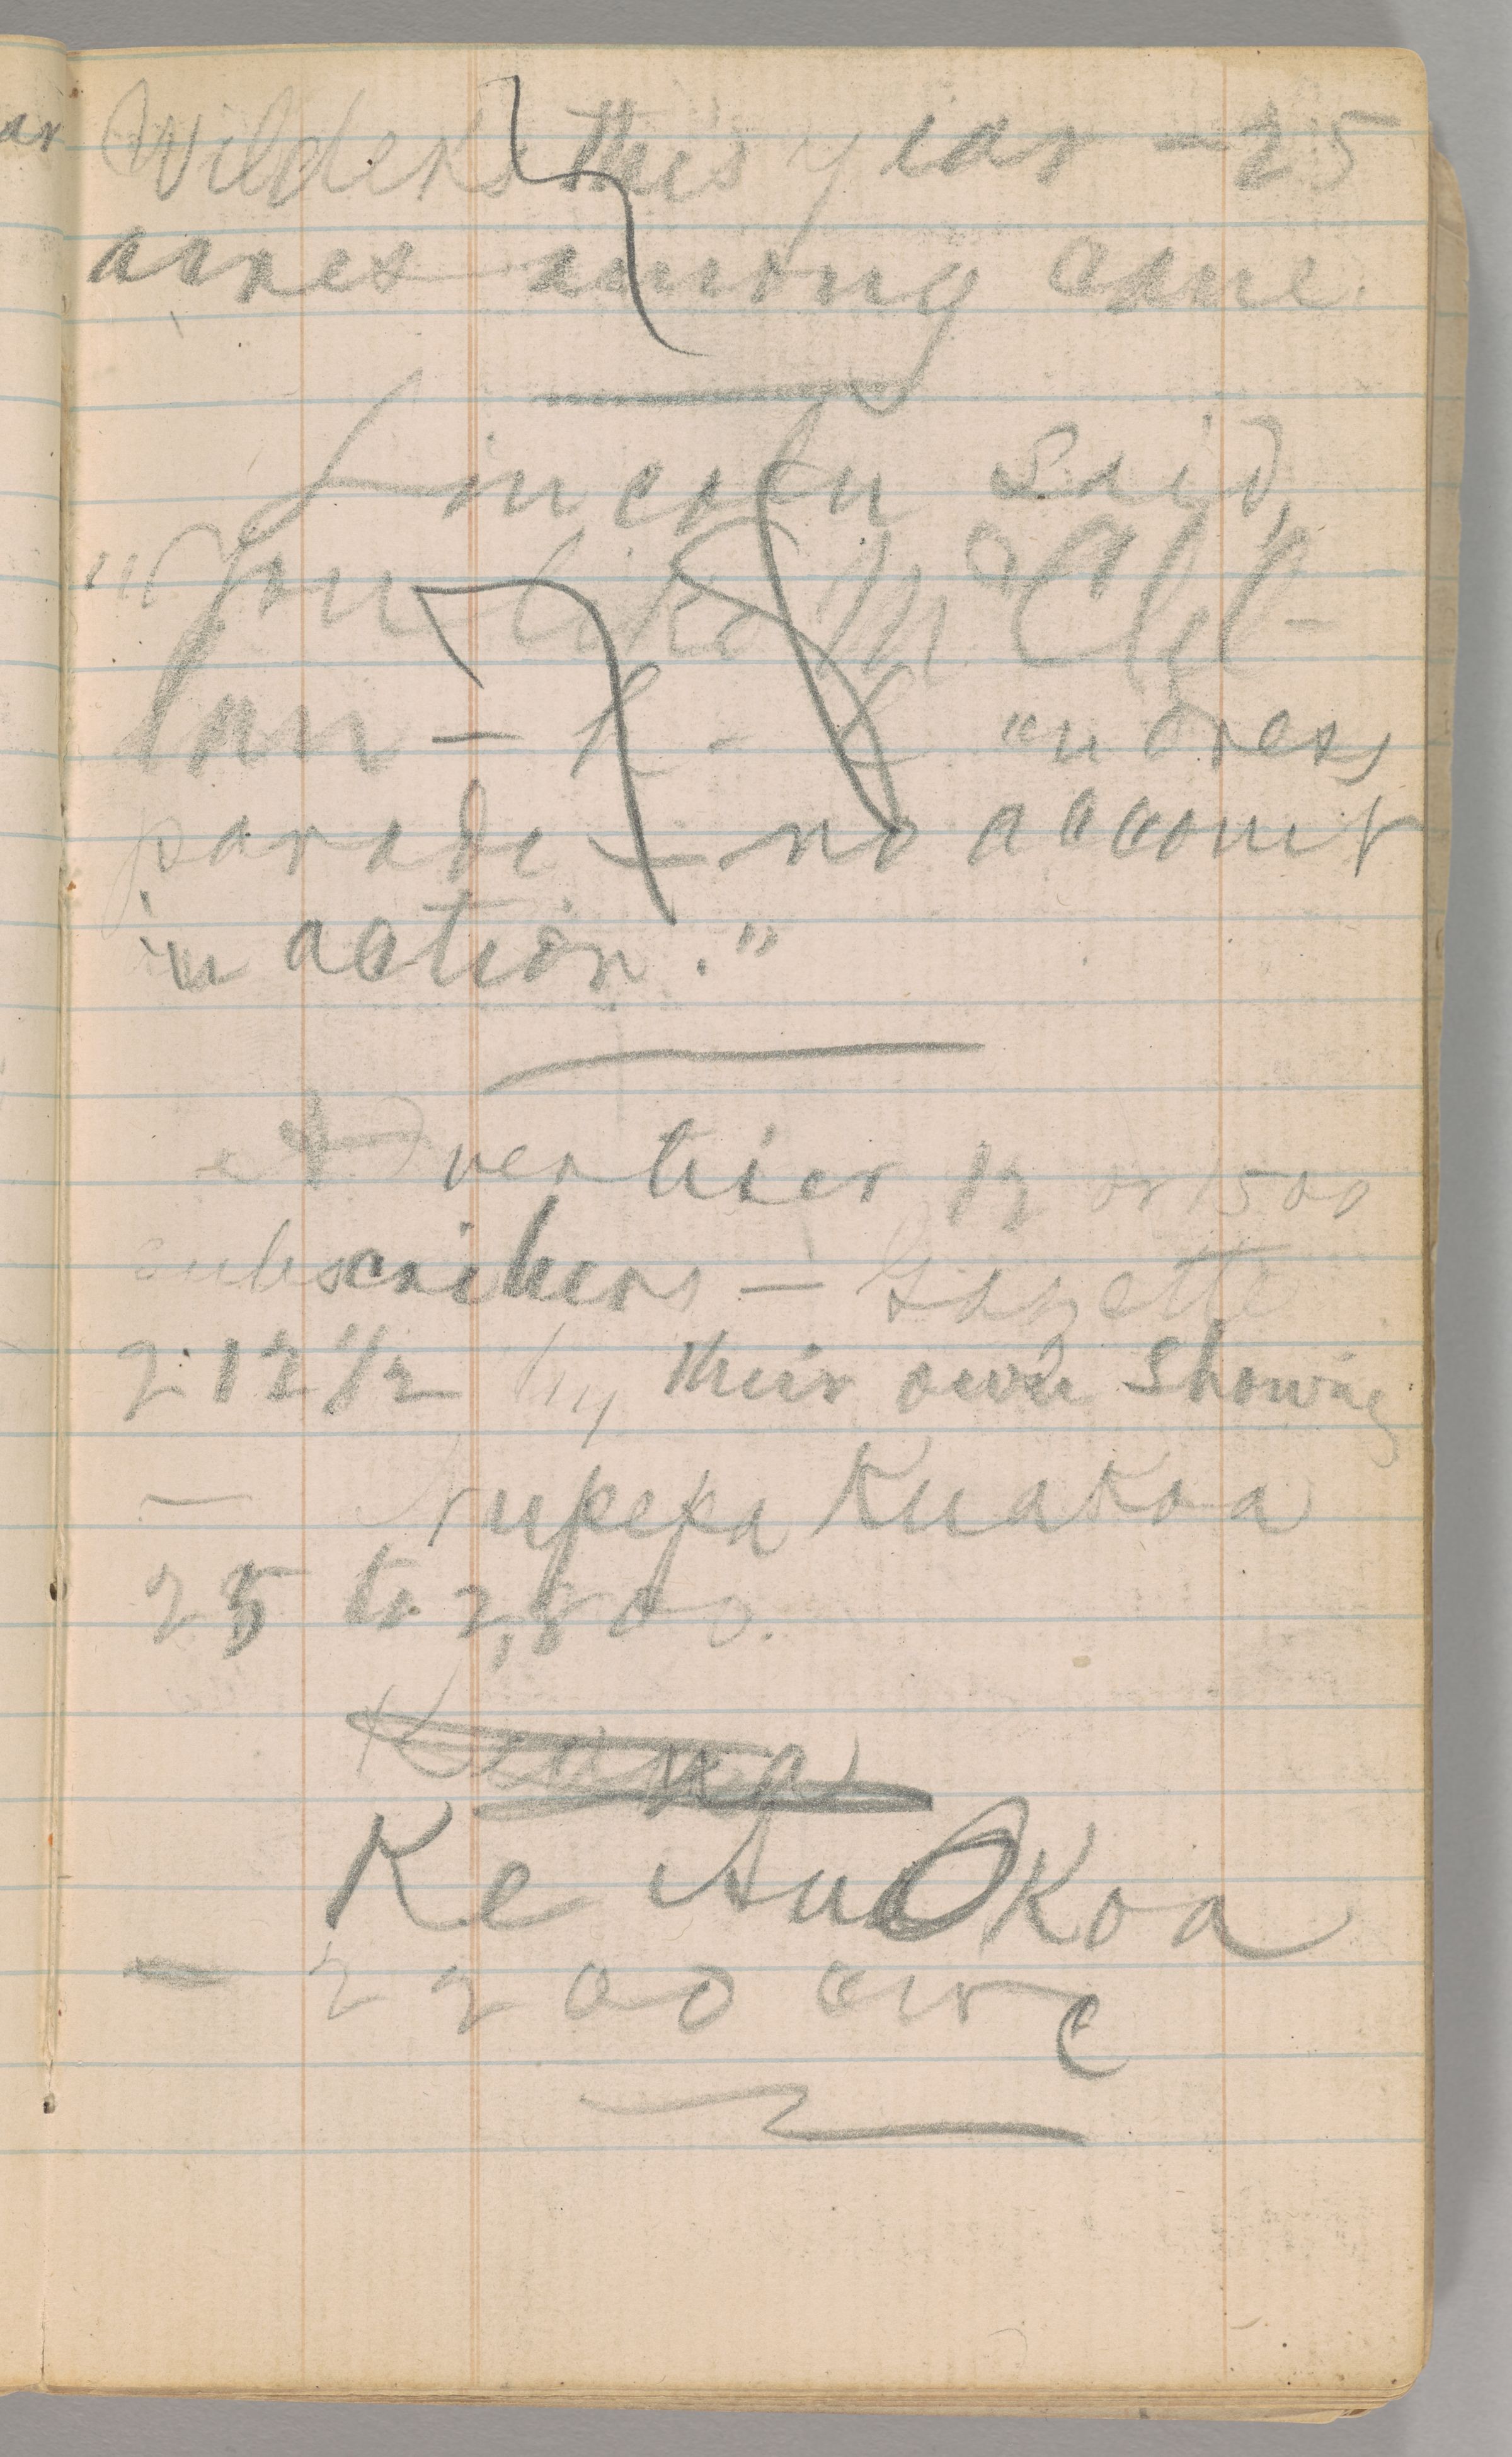 ar
Wilders this year – 25
acres among cane.
Lincoln said,
"You like McClel-
lan – h – l on dress
parade – no account
in action."
Advertiser 12 or 1500
subscribers – Gazette
212 1/2 by their own showing
– Nupepa Kuakoa
25 to 2,800.
Ke Au Okoa
– 2200 circ